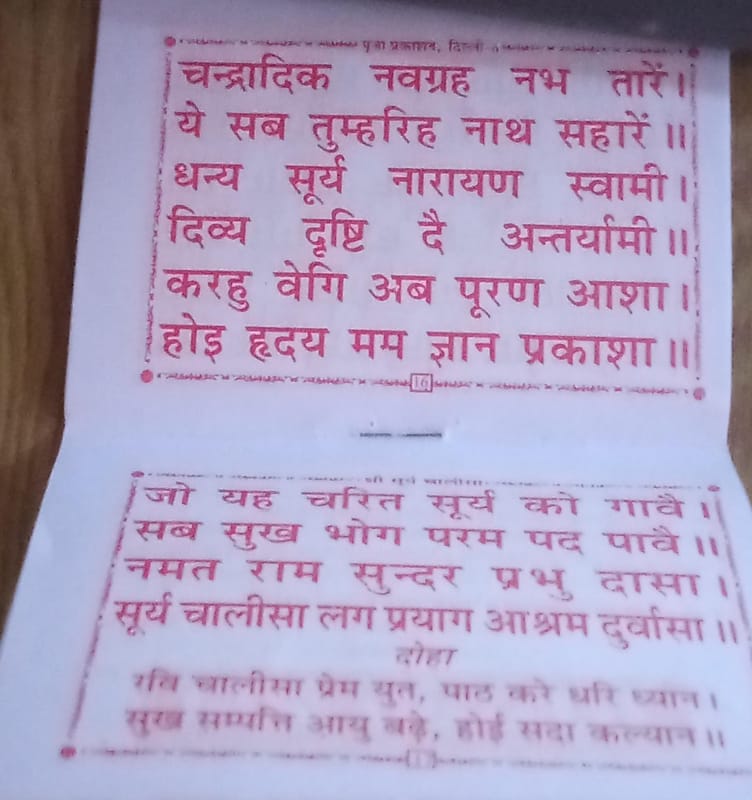 पूजा प्रकाशन, दिल्ली
चन्द्रादिक नवग्रह नभ तारें।
ये सब तुम्हरिह नाथ सहारें॥
धन्य सूर्य नारायण स्वामी।
दिव्य दृष्टि दै अन्तर्यामी॥
करहु वेगि अब पूरण आशा।
होइ हृदय मम ज्ञान प्रकाशा॥
16
श्री सूर्य चालीसा
जो यह चरित सूर्य को गावै।
सब सुख भोग परम पद पावै॥
नमत राम सुन्दर प्रभु दासा।
सूर्य चालीसा लग प्रयाग आश्रम दुर्वासा॥
दोहा
रवि चालीसा प्रेम युत, पाठ करे धरि ध्यान।
सुख सम्पत्ति आयु बढ़े, होई सदा कल्यान॥